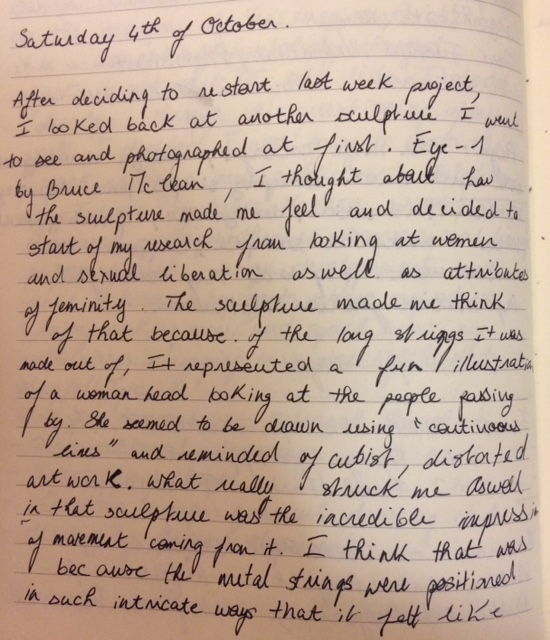 Saturday 4th of October.
After deciding to restart last week project,
I looked back at another sculpture I went
to see and photographed at first. Eye-1
by Bruce McLean, I thought about how
the sculpture made me feel and decided to
start of my research from looking at women
and sexual liberation aswell as attributes
of feminity. The sculpture made me think
of that because. of the long strings It was
made out of, It represented a fun illustration
of a woman head looking at the people passing
by. She seemed to be drawn using "continuous
lines" and reminded of cubist, distorted
artwork. What really struck me aswell
in that sculpture was the incredible impression
of movement coming from it. I think that was
because the metal strings were positioned
in such intricate ways that it felt like